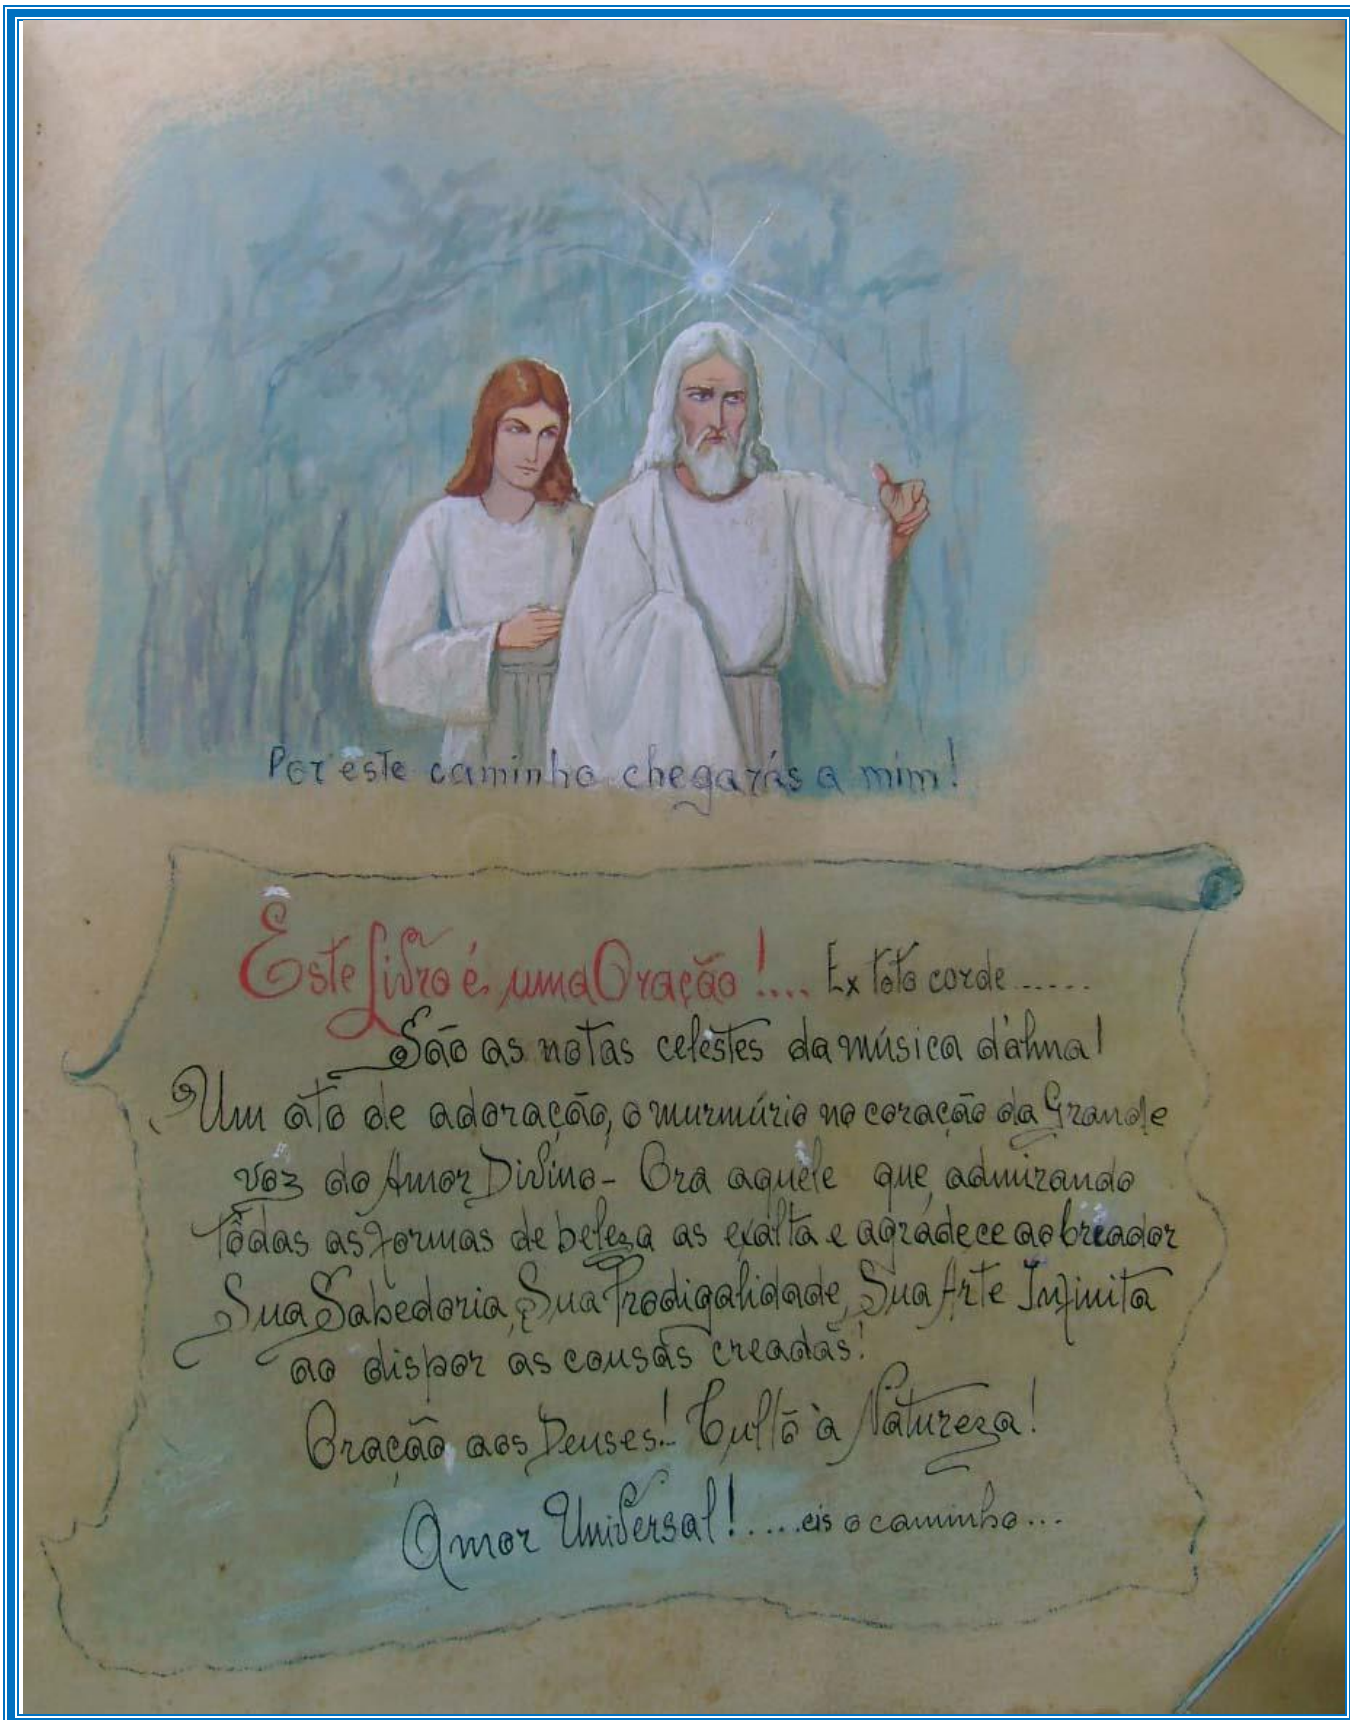 Por este caminho chegarás a mim!
Este Livro é uma Oração!.... Ex toto corde......
São as notas celestes da música d'alma!
Um ato de adoração, o murmúrio no coração da Grande
voz do Amor Divino- Ora aquele que admirando
tôdas as formas de beleza as exalta e agradece ao Creador
Sua Sabedoria, Sua Prodigalidade, Sua Arte Infinita
ao dispor as cousas creadas!
Oração aos Deuses!.. Culto à Natureza!
Amor Universal!.....eis o caminho...